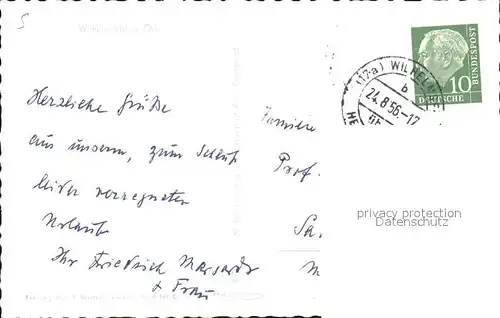 5
Herzliche Grüße
aus unserem, zum Schluß
leider verregneten
Urlaub
Ihr Friedrich
& Frau
Familie
Prof.
(17a) WILHELM
b
24.8.56.-17
10
DEUTSCHE
BUNDESPOST
privacy protection
Datenschutz